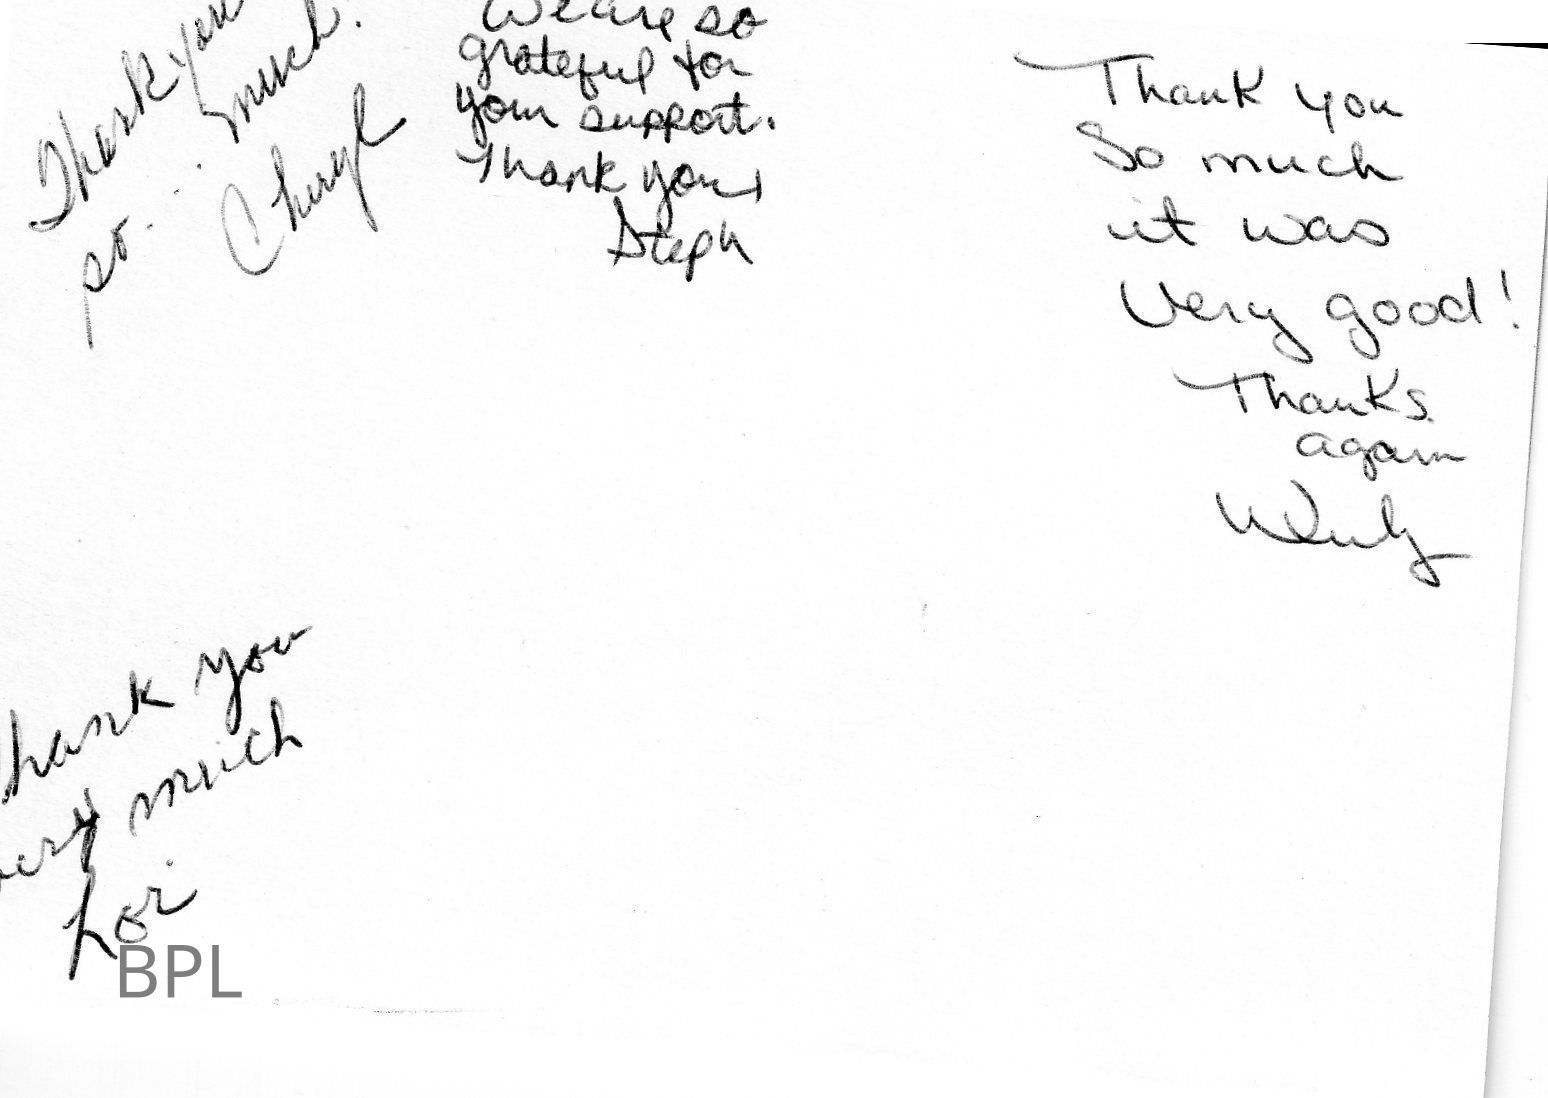 Thank you
so... much.
Cheryl
We are so
grateful for
your support.
Thank you!
Steph
Thank you
So much
it was
Very good!
Thanks
again
Wendy
hank you
ery much
Lori
BPL